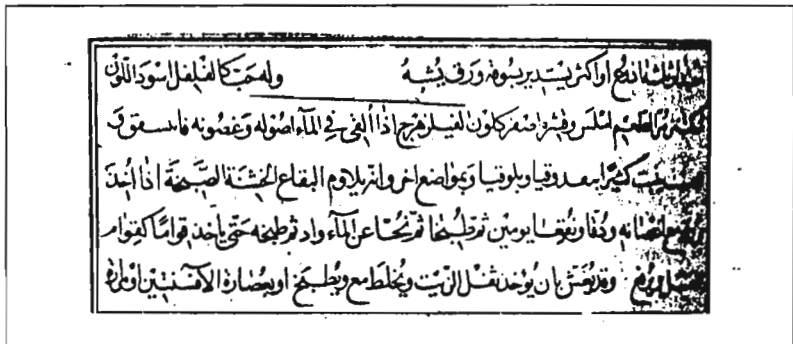 ثلثة اذرع او اكثر يستدير بسوقه ورق يشبه وله حب كالفلفل اسود اللون
مر الطعم املس وقشره اصفر كلون الفيلزهرج اذا القى في الماء اصوله وغصونه
ينبت كثيرا ببعدوقيا وبلوقيا وبمواضع اخر وانه يلاوم البقاع الخشنة الصحيحة اذا اخذ
مع اغصانه ودقا ونقعا يومين ثم طبخا ثم نحيا عن الماء واد ثم طبخه حتى ياخذ قواما كقوام
العسل ويرفع وقد يغش بان يوخذ ثفل الزيت ويخلط مع ويطبخ او بعصارة الافسنتين او مرارة